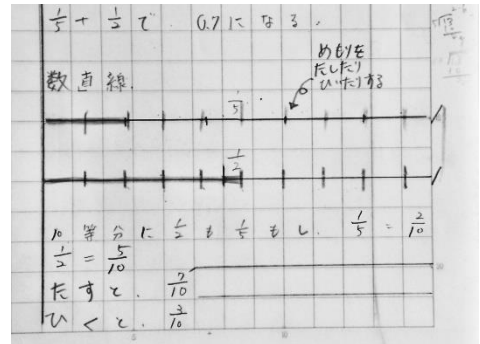 1/5 + 1/2 で 0.7 になる.
数直線.
めもりを
たしたり
ひいたりする
1/5
1/2
10等分に 1/2 も 1/5 もし. 1/5 = 2/10
1/2 = 5/10
たすと. 7/10
ひくと. 3/10